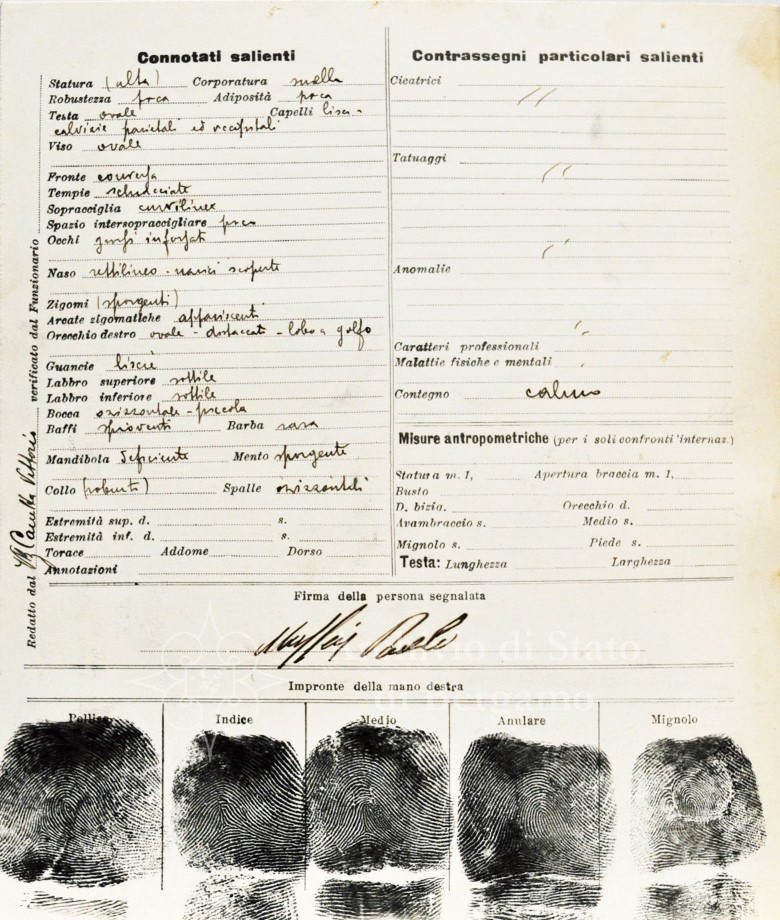 Connotati salienti
Statura (alta) Corporatura snella
Robustezza poca Adiposità poca
Testa ovale Capelli lisci -
calvizie parietali ed occipitali
Viso ovale
Fronte convessa
Tempie schiacciate
Sopracciglia curvilinee
Spazio intersopraccigliare poco
Occhi infossati
Naso rettilineo - narici scoperte
Zigomi (sporgenti)
Arcate zigomatiche appariscenti
Orecchio destro ovale - distaccati - lobo a golfo
Guancie liscie
Labbro superiore sottile
Labbro inferiore sottile
Bocca orizzontale - piccola
Baffi spioventi Barba rasa
Mandibola deficiente Mento sporgente
Collo (robusto) Spalle orizzontali
Estremità sup. d. s.
Estremità inf. d. s.
Torace Addome Dorso
Annotazioni
Redatto dal verificato dal Funzionario
Contrassegni particolari salienti
Cicatrici
//
Tatuaggi
//
//
Anomalie
Caratteri professionali
Malattie fisiche e mentali
Contegno calmo
Misure antropometriche (per i soli confronti internaz.)
Statura m. 1, Apertura braccia m. 1,
Busto
D. bizia. Orecchio d.
Avambraccio s. Medio s.
Mignolo s. Piede s.
Testa: Lunghezza Larghezza
Firma della persona segnalata
di Stato
di Bergamo
Impronte della mano destra
Pollice Indice Medio Anulare Mignolo